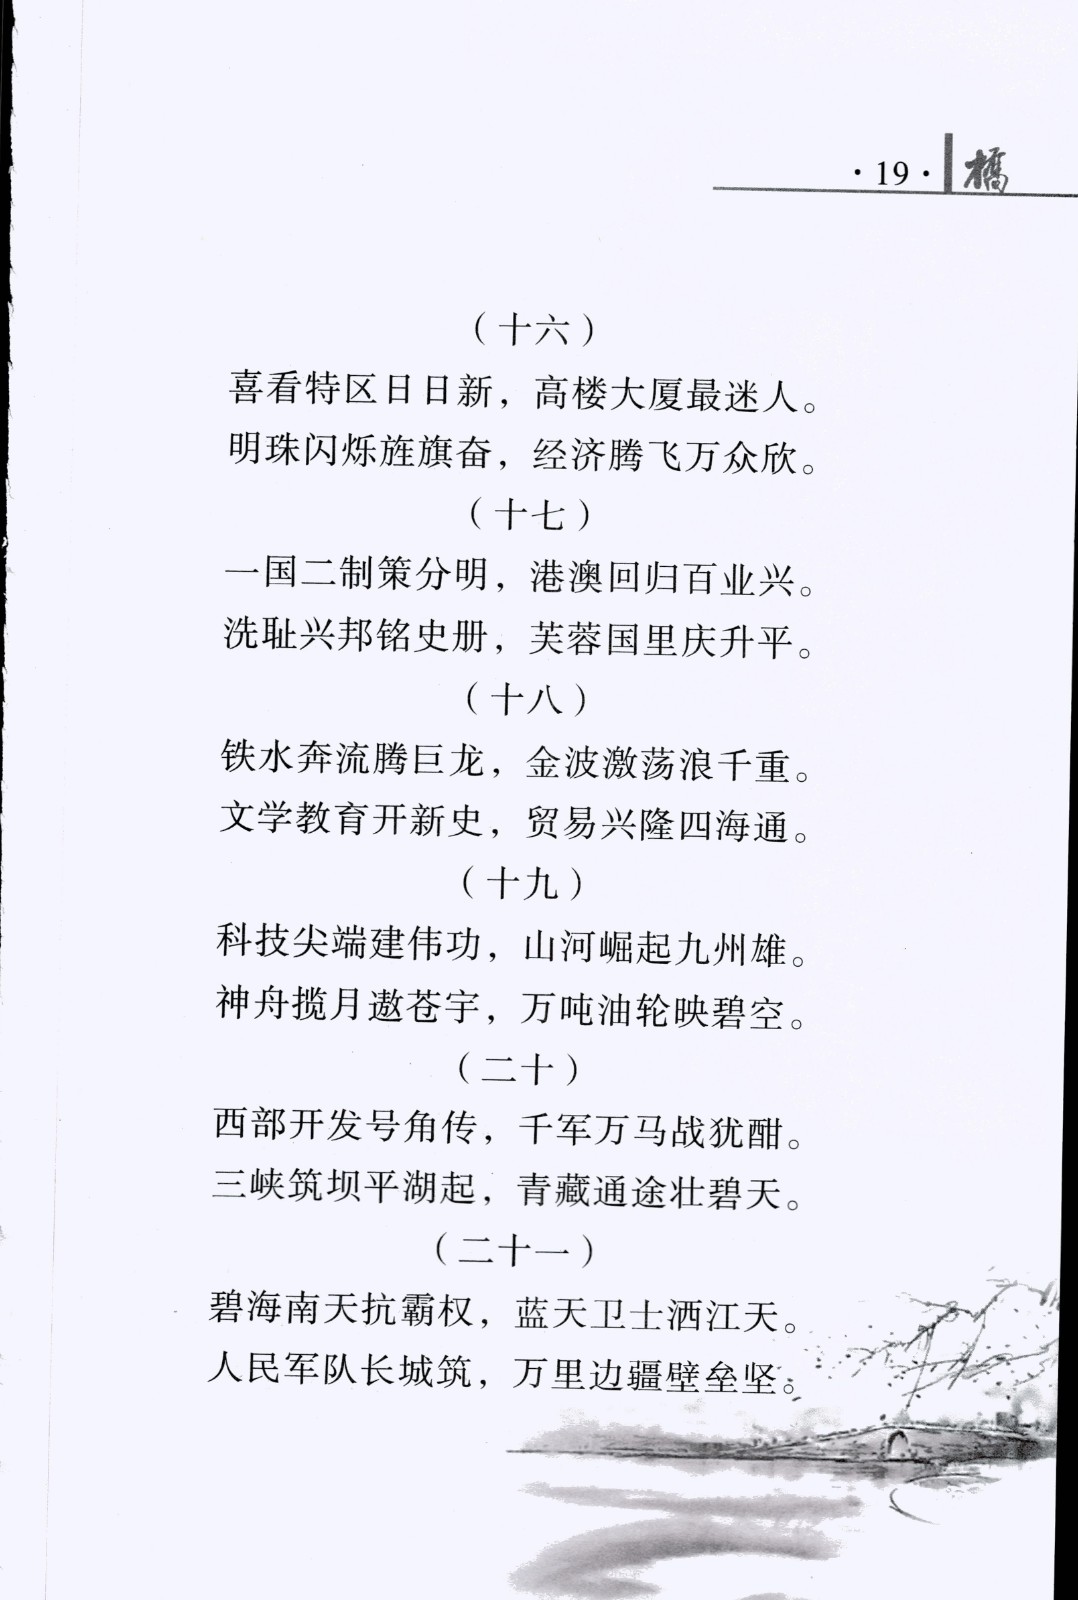 ·19· 橋
（十六）
喜看特区日日新，高楼大厦最迷人。
明珠闪烁旌旗奋，经济腾飞万众欣。
（十七）
一国二制策分明，港澳回归百业兴。
洗耻兴邦铭史册，芙蓉国里庆升平。
（十八）
铁水奔流腾巨龙，金波激荡浪千重。
文学教育开新史，贸易兴隆四海通。
（十九）
科技尖端建伟功，山河崛起九州雄。
神舟揽月遨苍宇，万吨油轮映碧空。
（二十）
西部开发号角传，千军万马战犹酣。
三峡筑坝平湖起，青藏通途壮碧天。
（二十一）
碧海南天抗霸权，蓝天卫士洒江天。
人民军队长城筑，万里边疆壁垒坚。